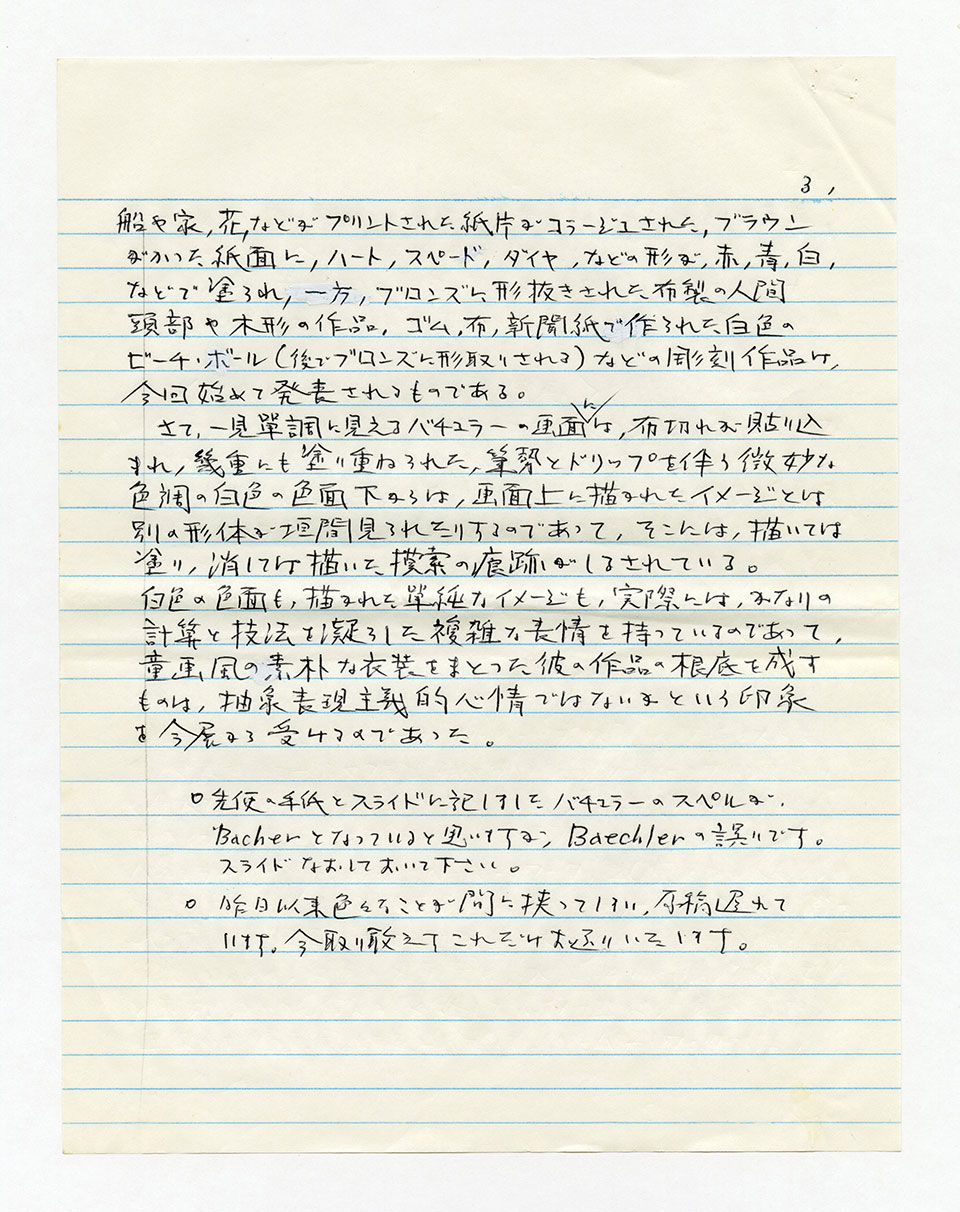 3,
船や家,花,などがプリントされた紙片がコラージュされた,ブラウン
がかった紙面に,ハート,スペード,ダイヤ,などの形が,赤,青,白,
などで塗られ,一方,ブロンズに形抜きされた布製の人間
頭部や木形の作品,ゴム,布,新聞紙で作られた白色の
ビーチ・ボール(後でブロンズに形取りされる)などの彫刻作品は,
今回始めて発表されるものである。
に
さて,一見單調に見えるバチェラーの画面は,布切れが貼り込
まれ,幾重にも塗り重ねられた,筆勢とドリップを伴う微妙な
色調の白色の色面下からは,画面上に描かれたイメージとは
別の形体が垣間見られたりするのであって,そこには,描いては
塗り,消しては描いた摸索の痕跡がしるされている。
白色の色面も,描かれた單純なイメージも,実際には,かなりの
計算と技法を凝らした複雑な表情を持っているのであって,
童画風の素朴な衣装をまとった彼の作品の根底を成す
ものは,抽象表現主義的心情ではないかという印象
を今展から受けるのであった。
○先便の手紙とスライドに記しましたバチェラーのスペルが,
Bacherとなっていると思いますが,Baechlerの誤りです。
スライドなおしておいて下さい。
○昨日以来色々なことが間に挟ってしまい,原稿遅れて
います。今取り敢えずこれだけお送りいたします。